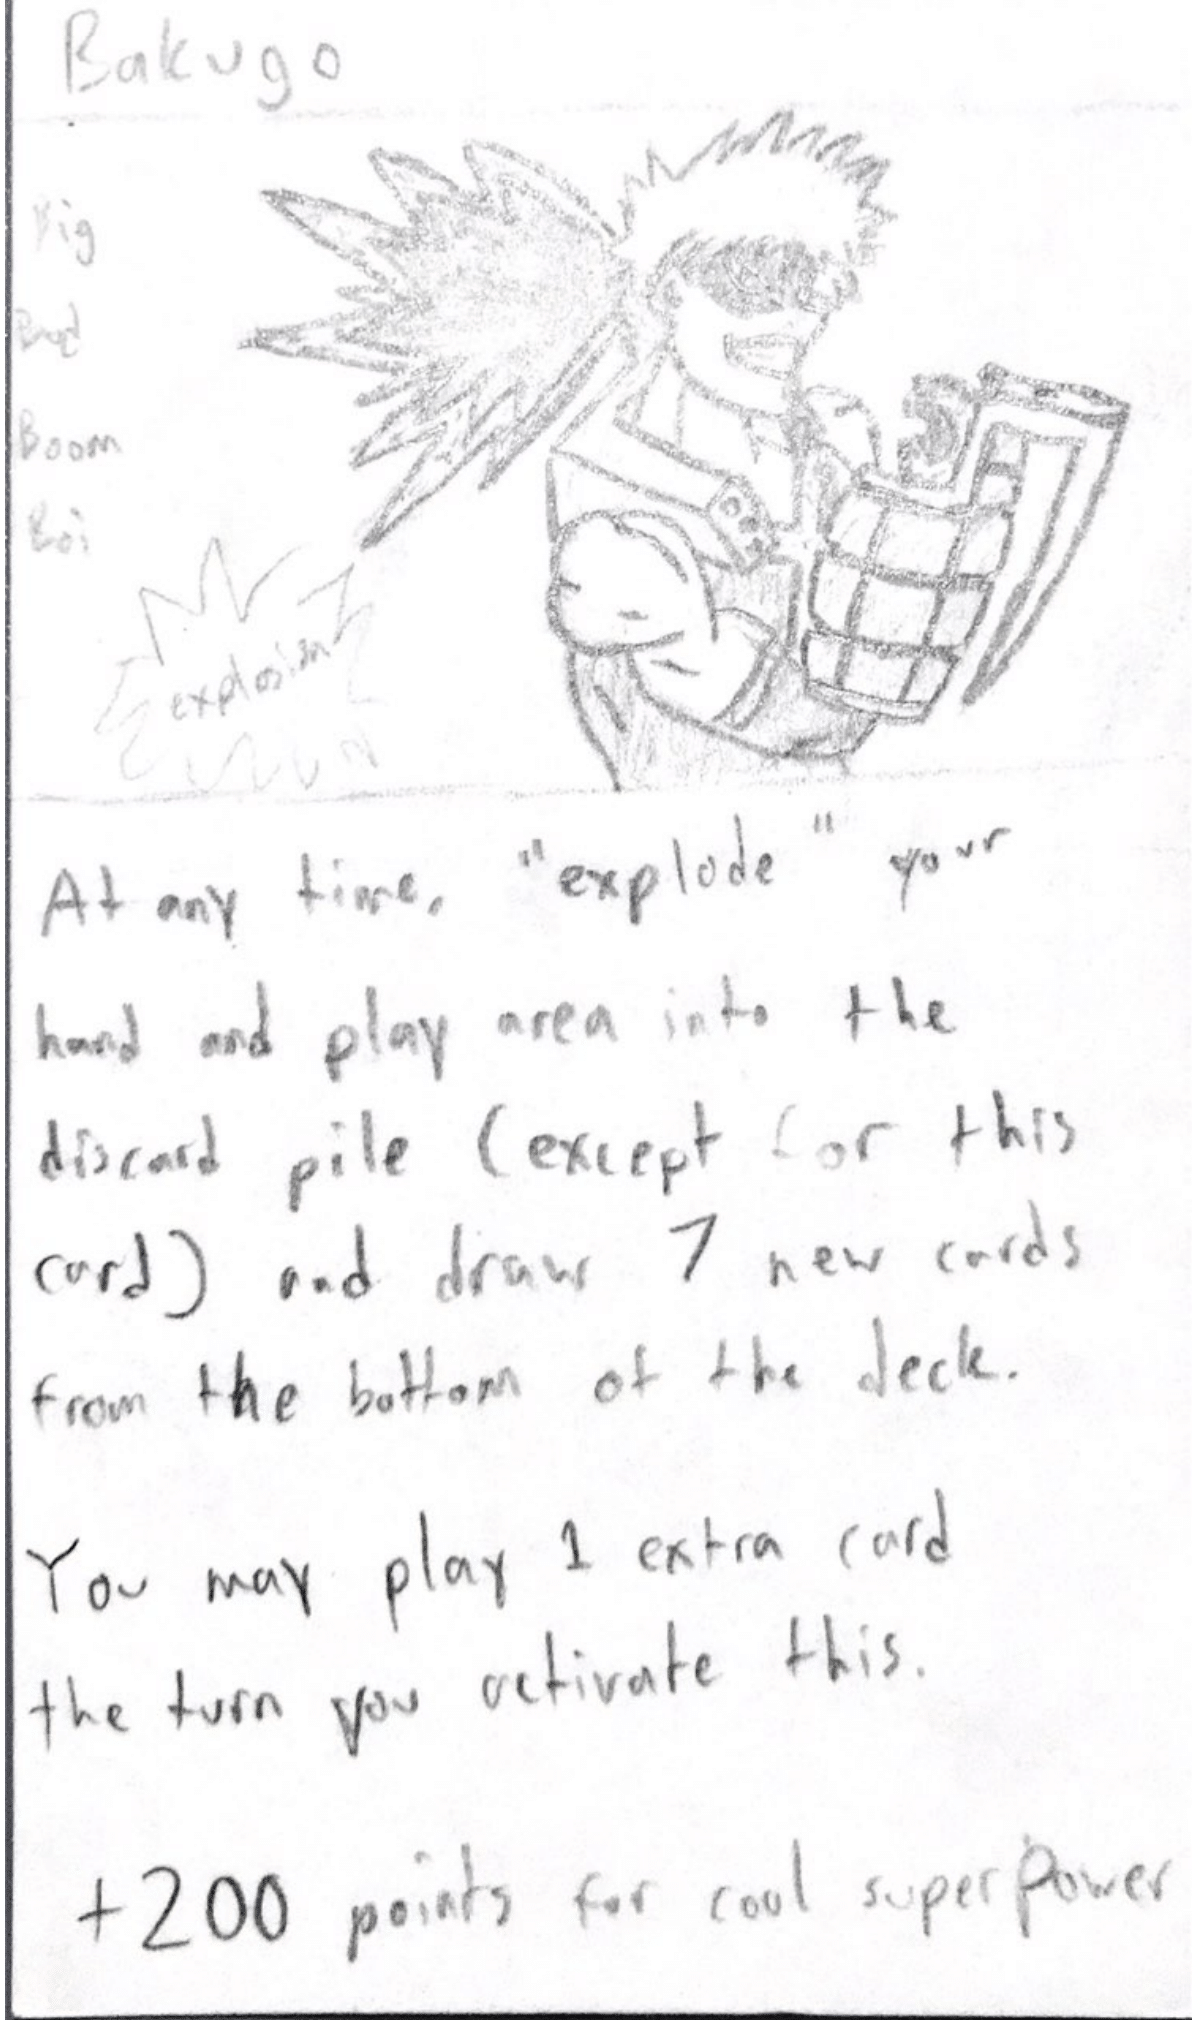 Bakugo
Big
Bad
Boom
Boi
explosion
At any time, "explode" your
hand and play area into the
discard pile (except for this
card) and draw 7 new cards
from the bottom of the deck.
You may play 1 extra card
the turn you activate this.
+200 points for cool superpower